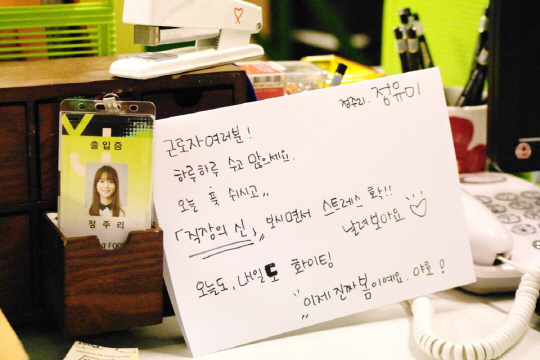 정주리. 정유미
근로자 여러분!
하루하루 수고 많으세요.
오늘 푹 쉬시고,,
「직장의 신」,, 보시면서 스트레스 확!!
날려보아요
오늘도, 내일도 화이팅!
이제 진짜 봄이예요. 야호!
출입증
정주리